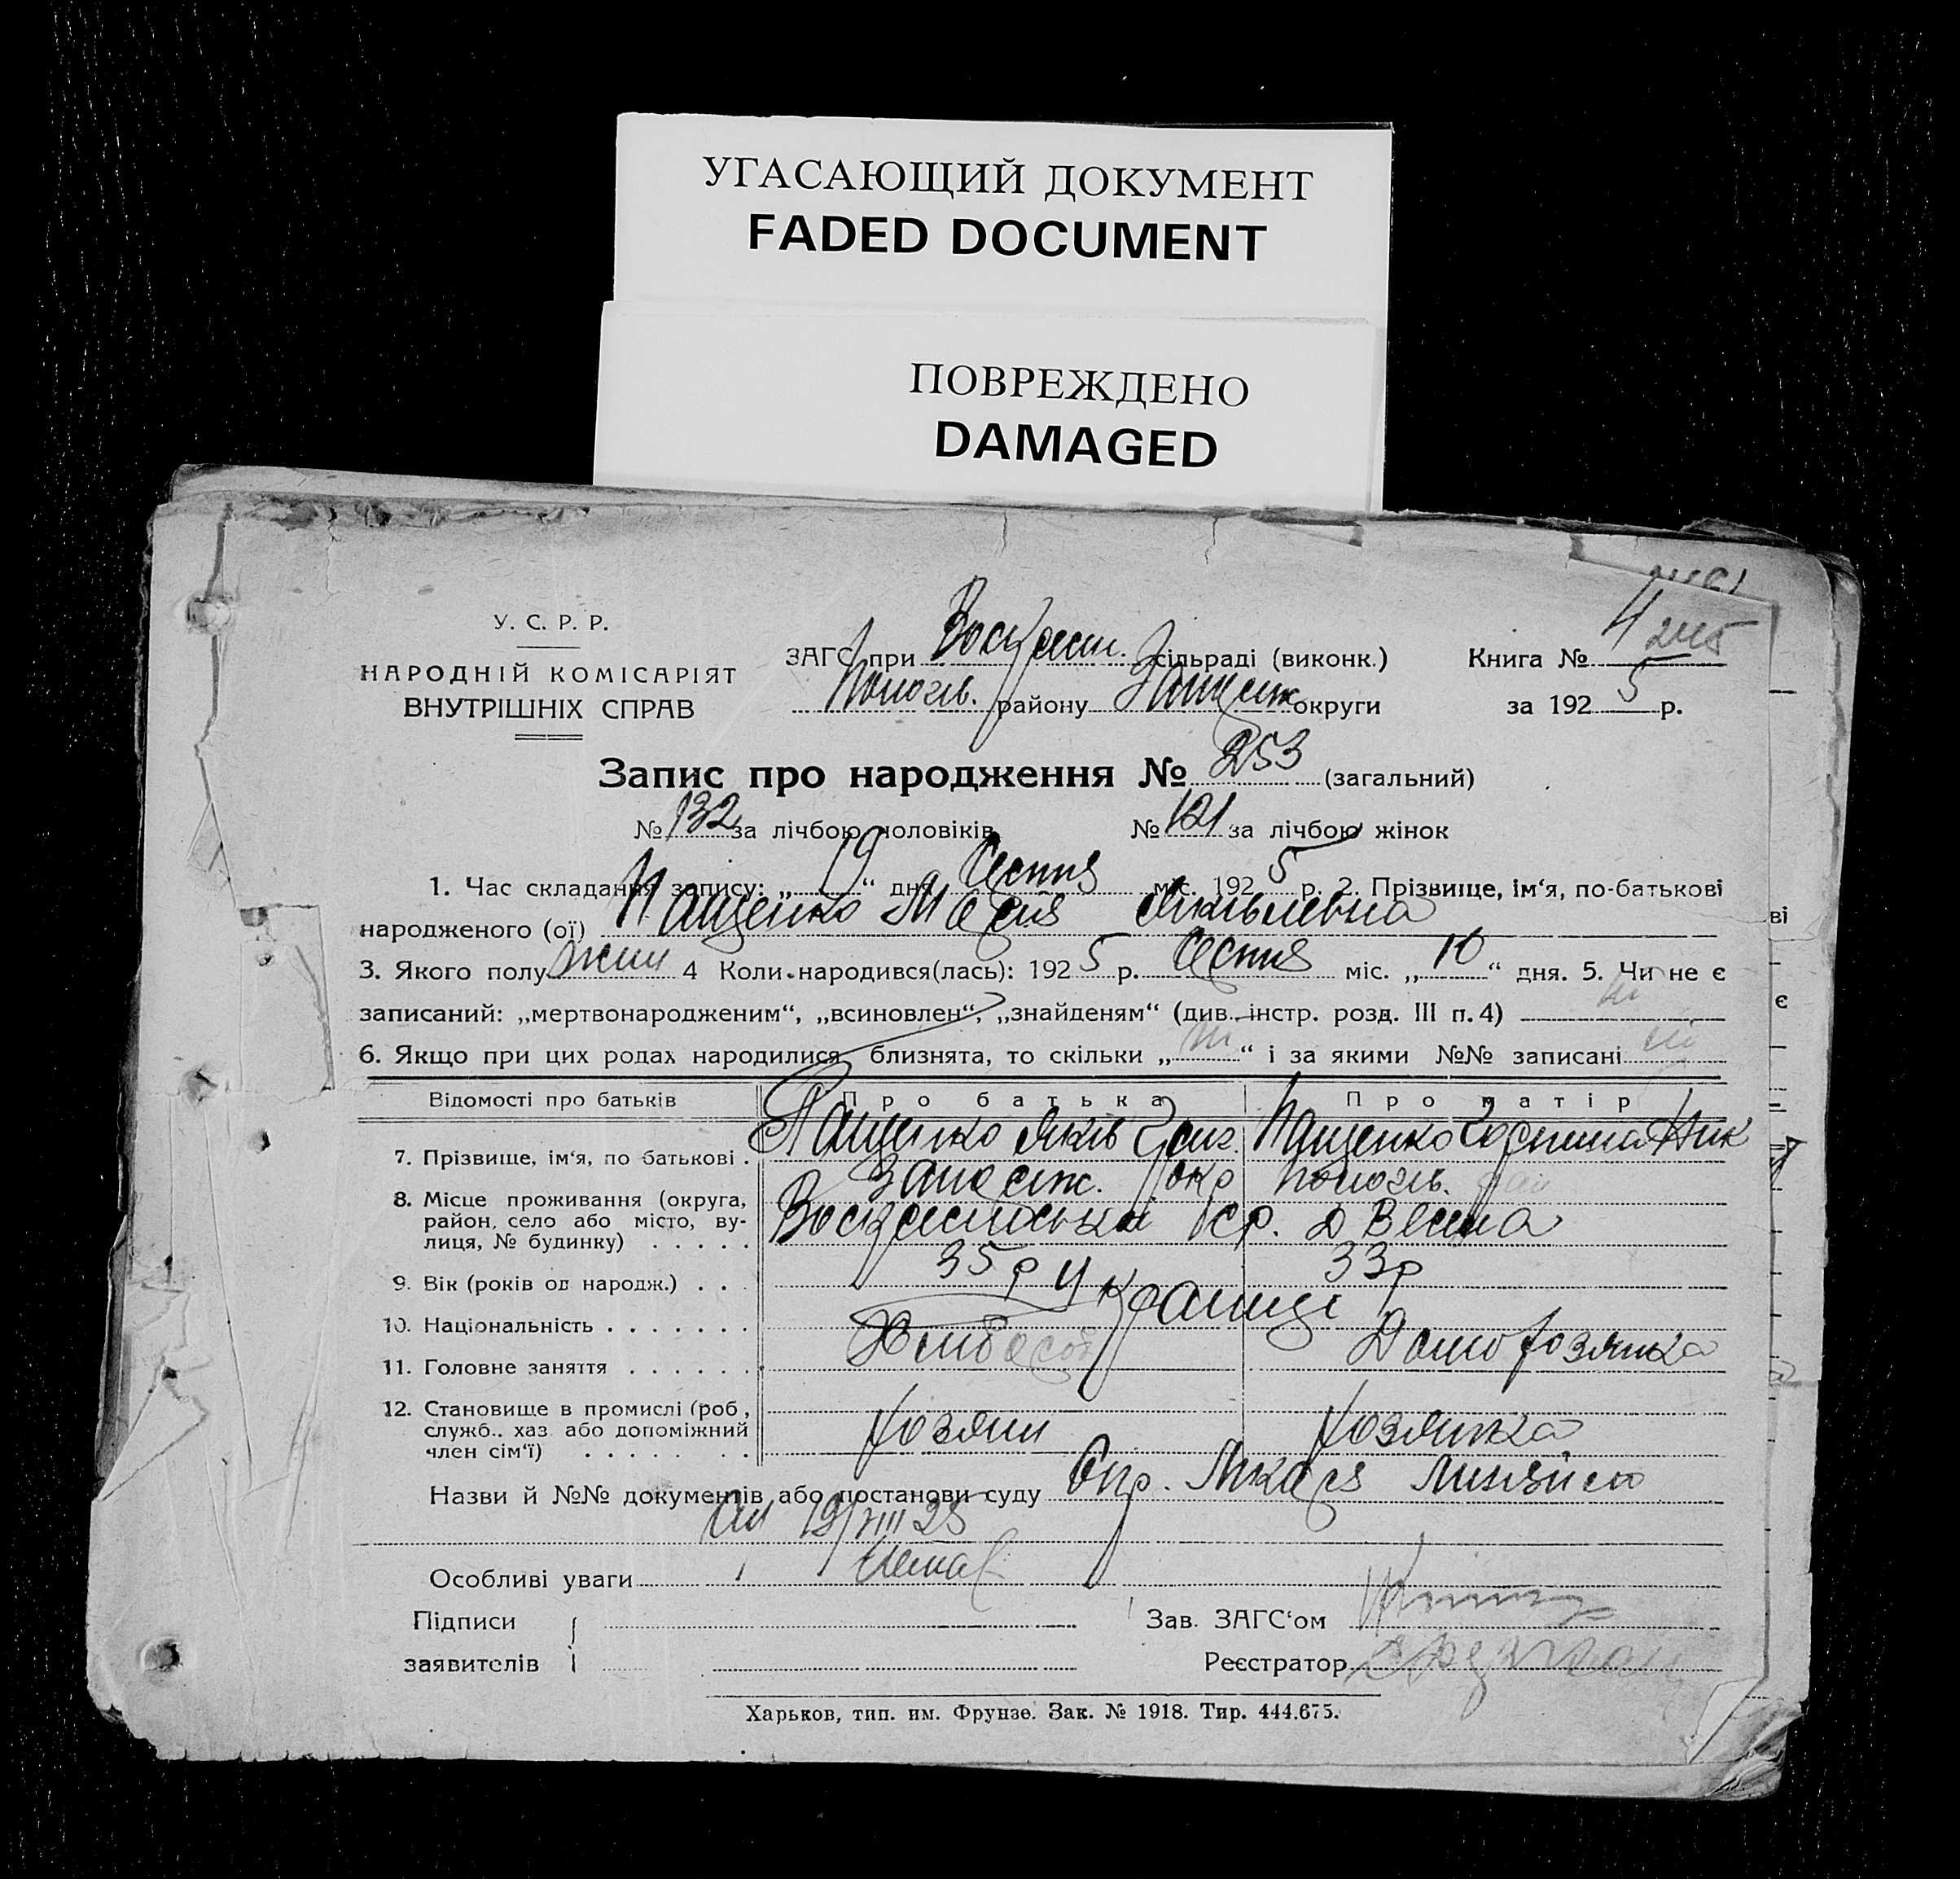 УГАСАЮЩИЙ ДОКУМЕНТ
FADED DOCUMENT
ПОВРЕЖДЕНО
DAMAGED
У. С. Р. Р.
НАРОДНІЙ КОМІСАРІЯТ
ВНУТРІШНІХ СПРАВ
ЗАГС при Воскресен. сільраді (виконк.)
Пологів. району Запоріж округи
Книга № 4
за 1925 р.
Запис про народження № 253 (загальний)
№ 132 за лічбою чоловіків № 121 за лічбою жінок
1. Час складання запису: „ 19 “ дня Серпня міс. 1925 р. 2. Прізвище, ім‘я, по-батькові
народженого (ої) Пащенко Марія Яківлевна
3. Якого полу жін 4 Коли народився(лась): 1925 р. Серпня міс. „ 10 “ дня. 5. Чи не є
записаний: „мертвонародженим“, „всиновлен“, „знайденям“ (див. інстр. розд. III п. 4) ні
6. Якщо при цих родах народилися близнята, то скільки „ ні “ і за якими №№ записані ні
Відомості про батьків Про батька Про матір
7. Прізвище, ім‘я, по батькові . Пащенко Яків Григ. Пащенко Горпина Ник
8. Місце проживання (округа, район, село або місто, вулиця, № будинку) . . . . . Запоріж. окр Пологів. рай
Воскресенська ср. д Весела
9. Вік (років од народж.) . . . 35 р 33 р
10. Національність . . . . . . . Українці
11. Головне заняття . . . . . . Хлібороб Домохозяйка
12. Становище в промислі (роб., служб., хаз. або допоміжний член сім‘ї) . . . . . . . хозяин хозяйка
Назви й №№ документів або постанови суду Спр. Лікаря
19/VIII 25
Особливі уваги Немає
Підписи
заявителів
Зав. ЗАГС‘ом
Реєстратор
Харьков, тип. им. Фрунзе. Зак. № 1918. Тир. 444.675.